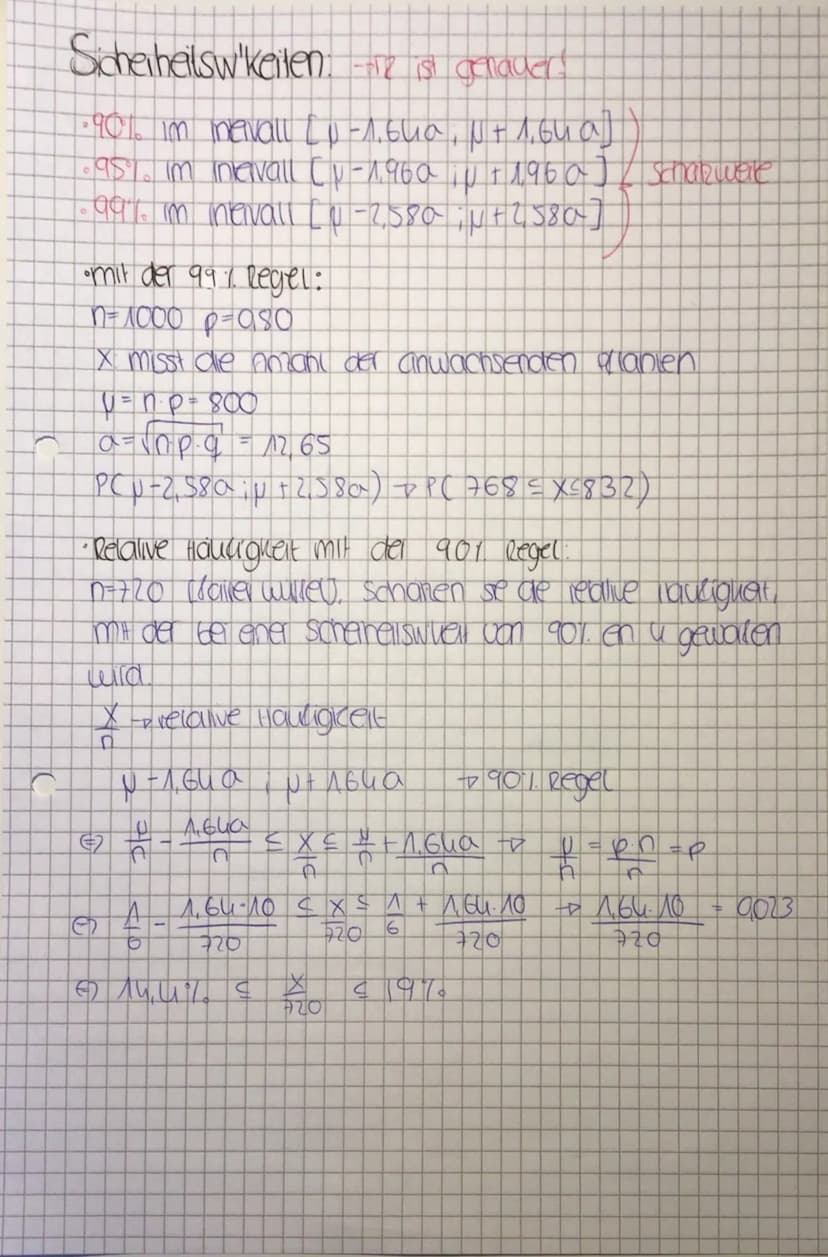 Sicherheitsw'keiten: → TR ist genauer!
· 90% im Intervall [μ-1,64σ ; μ+1,64σ]
· 95% im Intervall [μ-1,96σ ; μ+1,96σ] Schätzwerte
· 99% im Intervall [μ-2,58σ ; μ+2,58σ]
· mit der 99% Regel:
n=1000 p=0,80
X misst die Anzahl der anwachsenden Pflanzen
μ=n·p=800
σ=√n·p·q = 12,65
P(μ-2,58σ ; μ+2,58σ) → P(768 ≤ X ≤ 832)
· Relative Häufigkeit mit der 90% Regel:
n=720 (fairer Würfel). Schätzen Sie die relative Häufigkeit,
mit der bei einer Sicherheitsw'keit von 90% ein 4 gewürfelt
wird.
X/n → relative Häufigkeit
μ-1,64σ ; μ+1,64σ → 90% Regel
⇔ μ/n - 1,64σ/n ≤ X/n ≤ μ/n + 1,64σ/n → μ/n = p·n/n = p
⇔ 1/6 - 1,64·10/720 ≤ X/720 ≤ 1/6 + 1,64·10/720 → 1,64·10/720 = 0,023
⇔ 14,4% ≤ X/720 ≤ 19%